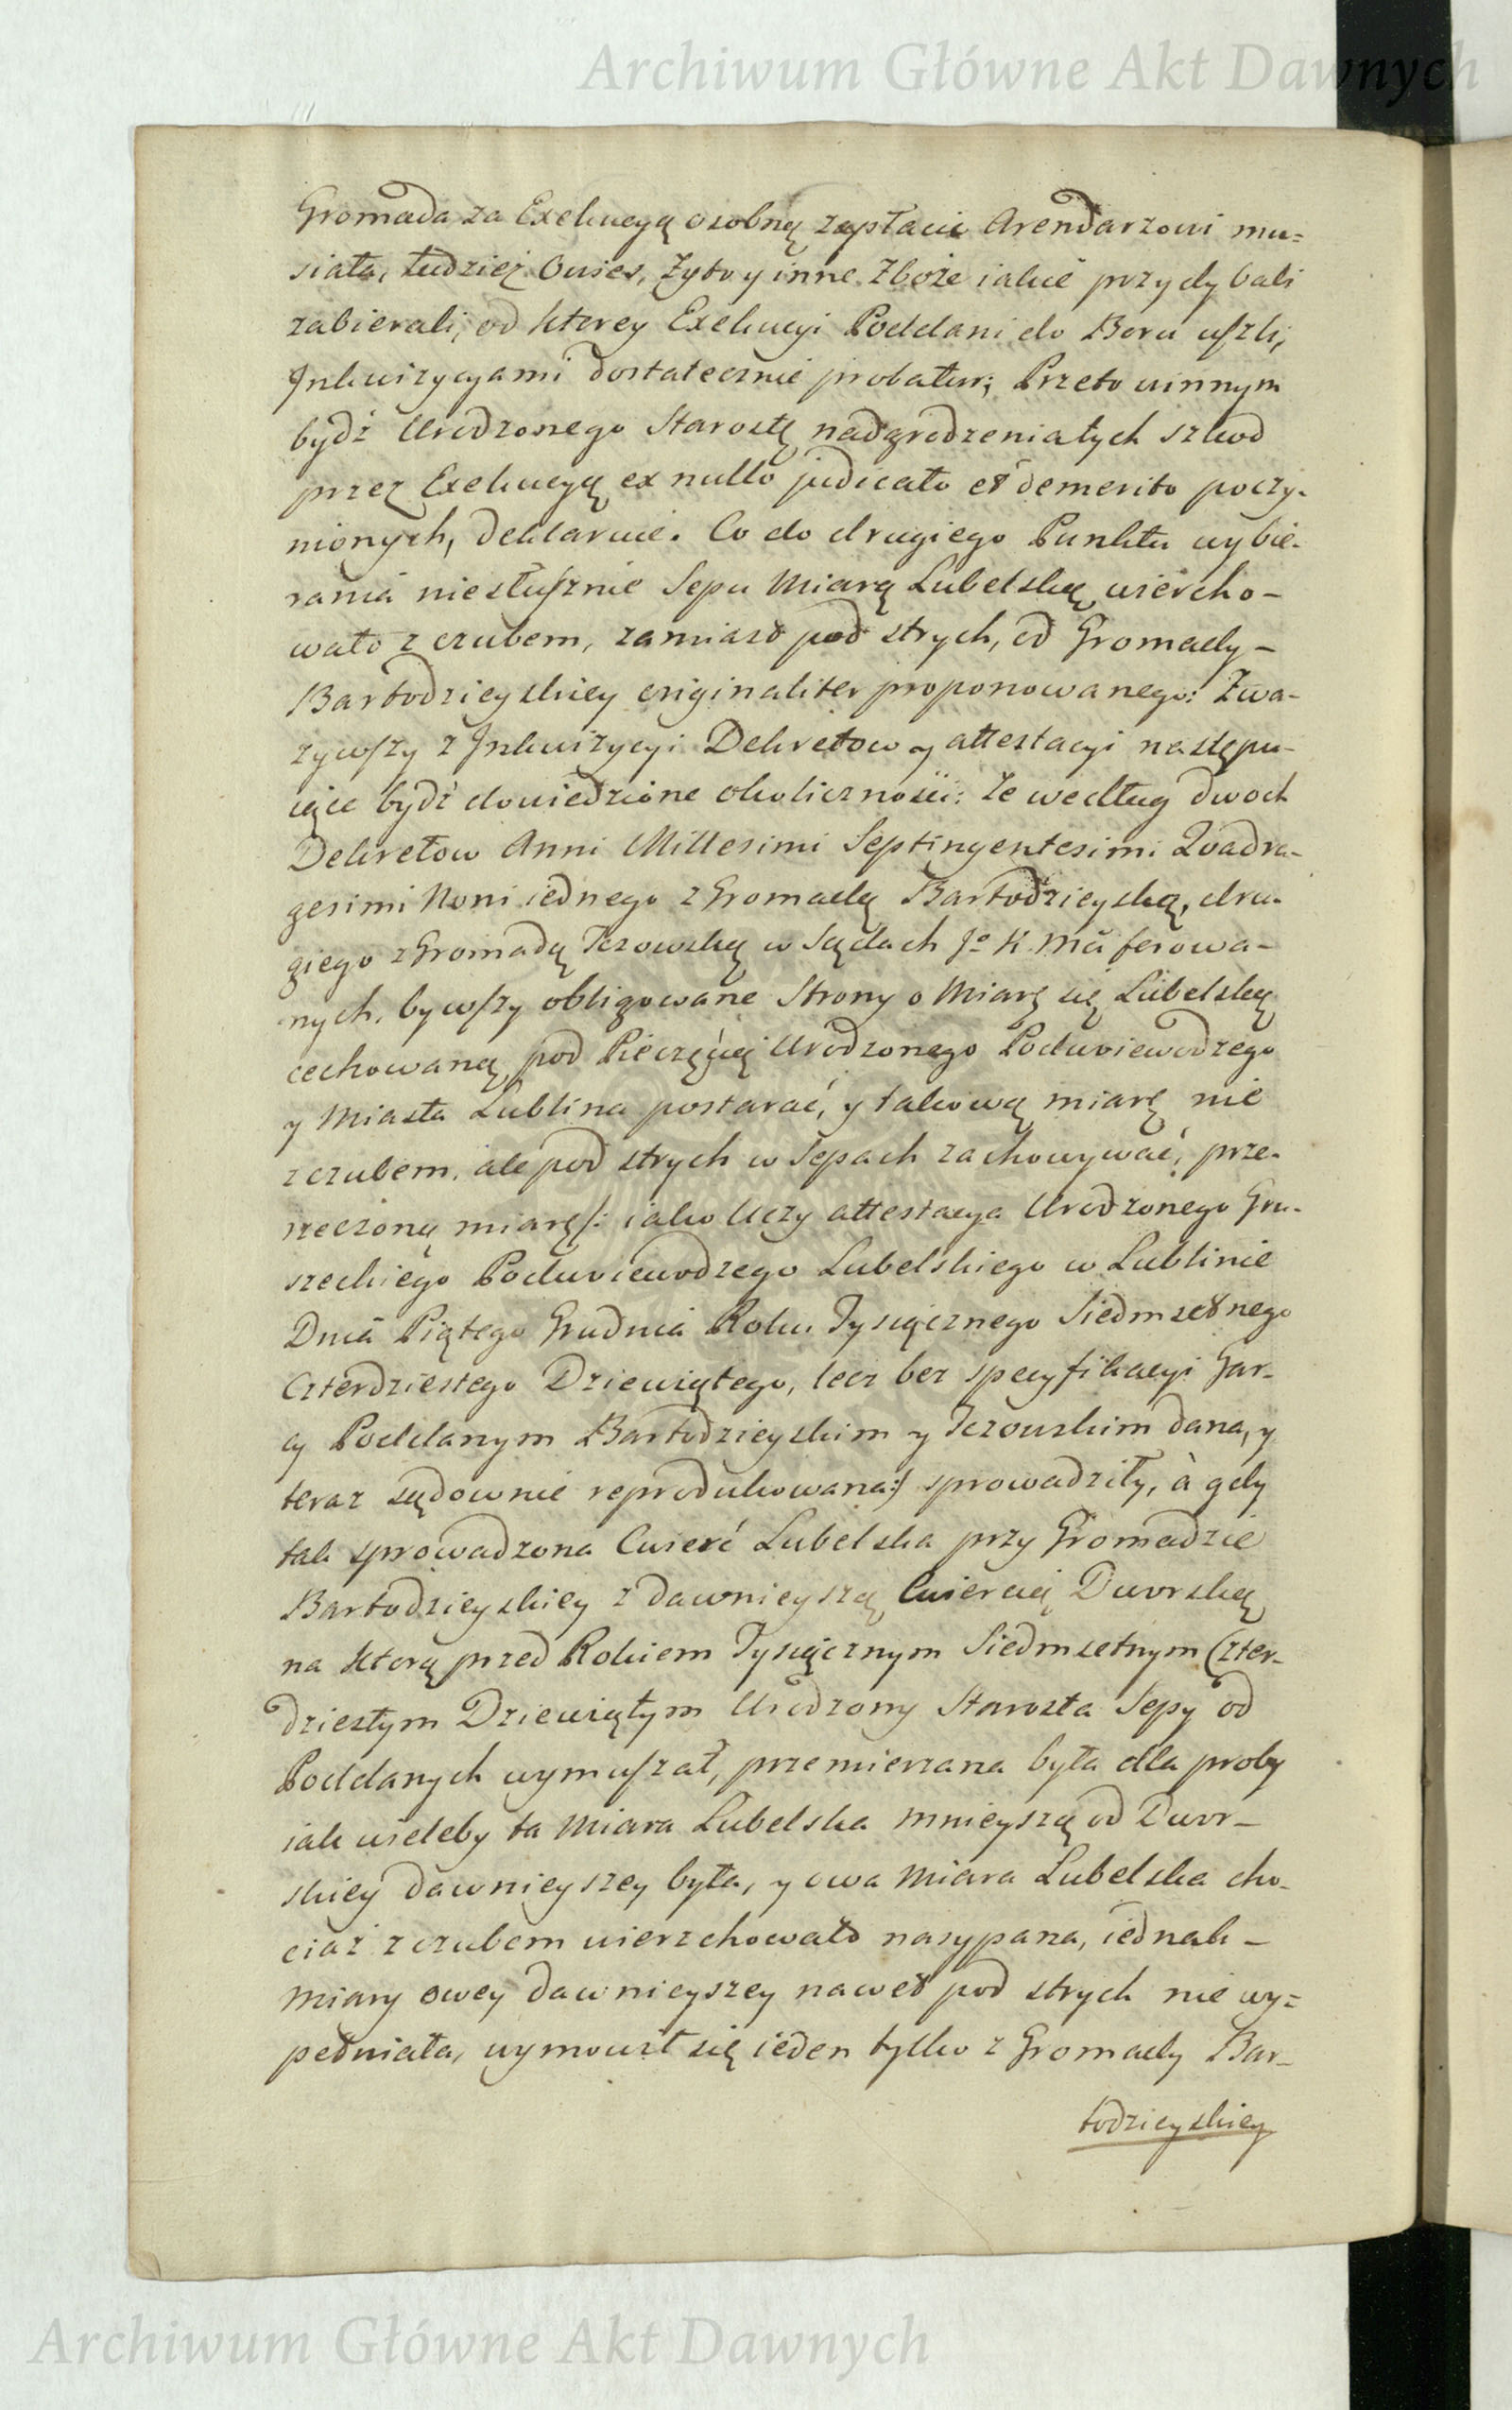 Archiwum Główne Akt Dawnych
Gromada za Exekucyą osobną zapłacić Arendarzowi mu=
siała, tudzież Owies, Żyto y inne Zboże iakie przydybali
zabierali, od ktorey Exekucyi Poddani do Boru uszli,
Inkwizycyami dostatecznie probatur; Przeto winnym
bydź Urodzonego Starostę nadgrodzenia tych szkod
przez Exekucyą ex nullo judicato et demerito poczy-
nionych, deklaruie. Co do drugiego Punktu wybie-
rania niesłusznie Sepu Miarą Lubelską wiercho-
wato z czubem, zamiast pod strych, od Gromady-
Bartodzieyskiey originaliter proponowanego: Zwa-
żywszy z Inkwizycyi Dekretow y attestacyi następu-
iące bydź dowiedzione okoliczności: Że według dwoch
Dekretow Anni Millesimi Septingentesimi Quadra-
gesimi Noni iednego z Gromadą Bartodzieyską, dru-
giego z Gromadą Jczowską w Sądach Jo K Mći ferowa-
nych, bywszy obligowane Strony o Miarę się Lubelską
cechowaną pod Pieczęcią Urodzonego Podwoiewodzego
y Miasta Lublina postarać, y takową miarę nie
z czubem, ale pod strych w Sepach zachowywać, prze-
rzeczoną miarę/: iako Uczy attestacya Urodzonego Gru-
szeckiego Podwoiewodzego Lubelskiego w Lublinie
Dnia Piątego Grudnia Roku Tysiącznego Siedmsetnego
Czterdziestego Dziewiątego, lecz bez specyfikacyi Gar-
cy Poddanym Bartodzieyskim y Jczowskim dana, y
teraz sądownie reprodukowana:/ sprowadziły, à gdy
tak sprowadzona Cwierć Lubelska przy Gromadzie
Bartodzieyskiey z dawnieyszą Cwiercią Dworską
na ktorą przed Rokiem Tysiącznym Siedmsetnym Czter-
dziestym Dziewiątym Urodzony Starosta Sepy od
Poddanych wymuszał, przemierzana była dla proby
iak wieleby ta Miara Lubelska mnieyszą od Dwor-
skiey dawnieyszey była, y owa Miara Lubelska cho-
ciaż z czubem wierzchowato nasypana, iednak-
miary owey dawnieyszey nawet pod strych nie wy=
pełniała, wymowił się ieden tylko z Gromady Bar-
todzieyskiey
Archiwum Główne Akt Dawnych